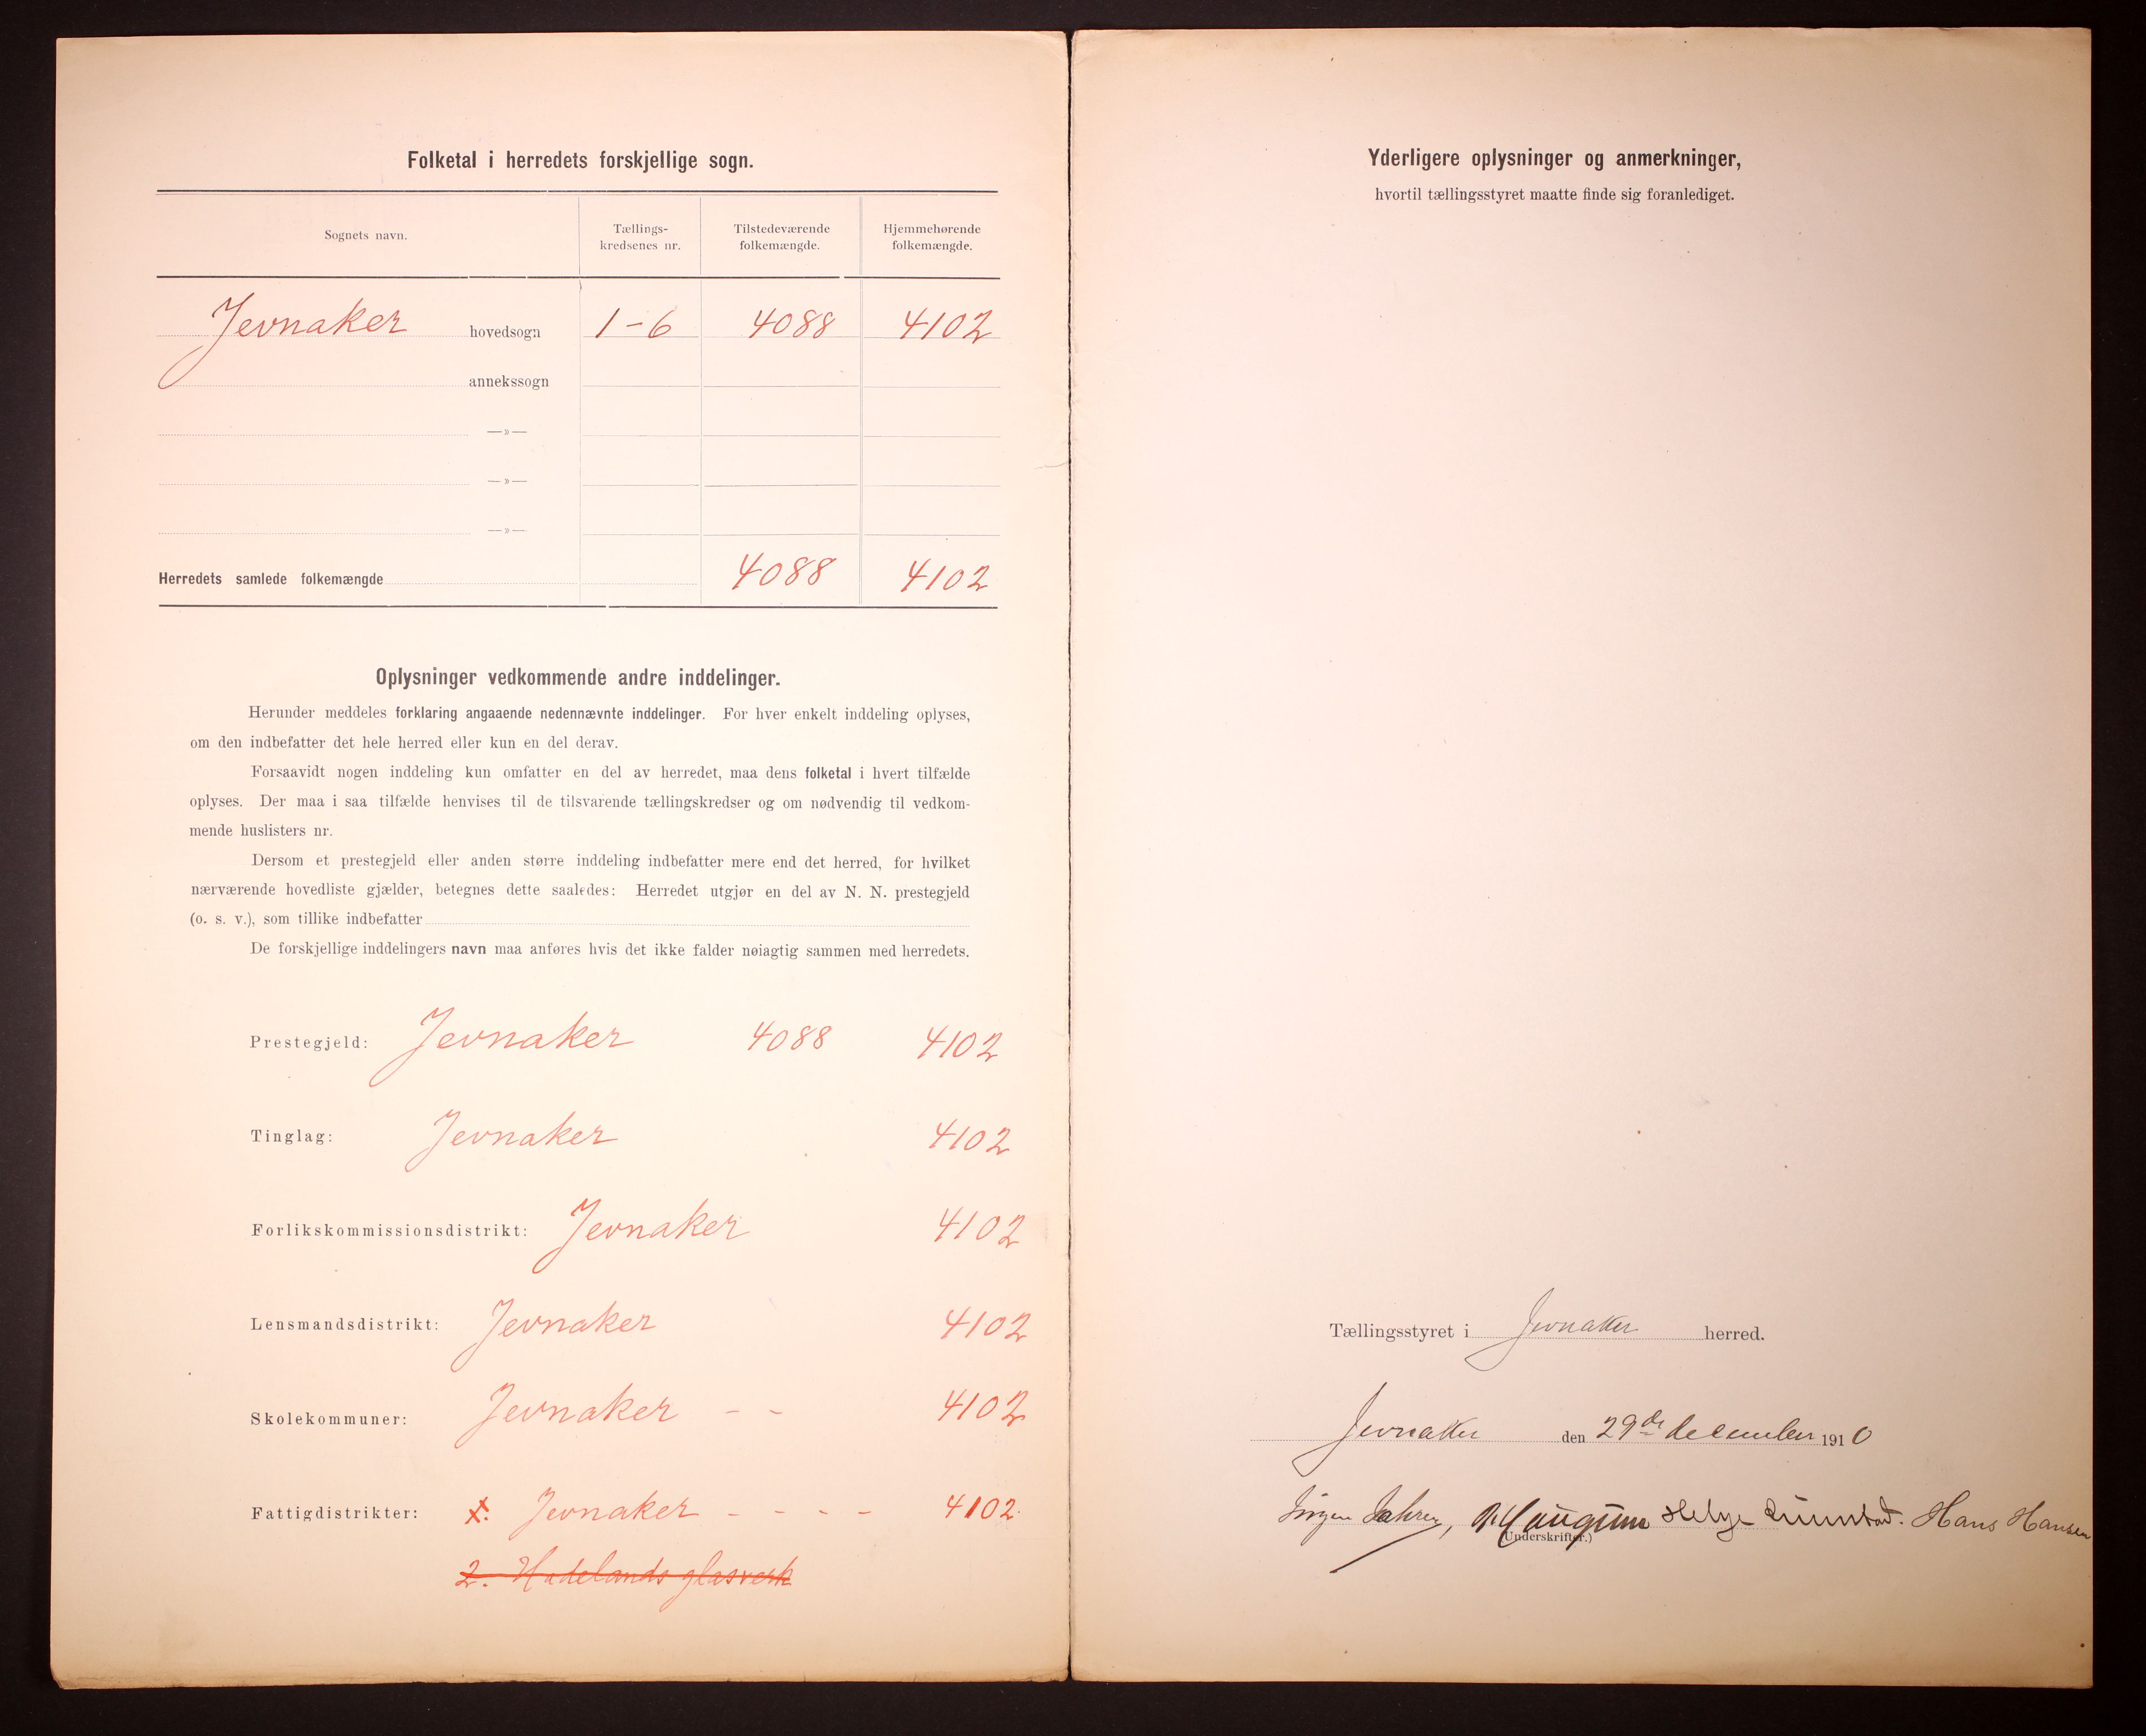 Folketal i herredets forskjellige sogn.
Sognets navn. Tællings-kredsenes nr. Tilstedeværende folkemængde. Hjemmehørende folkemængde.
Jevnaker hovedsogn 1-6 4088 4102
annekssogn
—»—
—»—
—»—
Herredets samlede folkemængde 4088 4102
Oplysninger vedkommende andre inddelinger.
Herunder meddeles forklaring angaaende nedennævnte inddelinger. For hver enkelt inddeling oplyses,
om den indbefatter det hele herred eller kun en del derav.
Forsaavidt nogen inddeling kun omfatter en del av herredet, maa dens folketal i hvert tilfælde
oplyses. Der maa i saa tilfælde henvises til de tilsvarende tællingskredser og om nødvendig til vedkom-
mende huslisters nr.
Dersom et prestegjeld eller anden større inddeling indbefatter mere end det herred, for hvilket
nærværende hovedliste gjælder, betegnes dette saaledes: Herredet utgjør en del av N. N. prestegjeld
(o. s. v.), som tillike indbefatter
De forskjellige inddelingers navn maa anføres hvis det ikke falder nøiagtig sammen med herredets.
Prestegjeld: Jevnaker 4088 4102
Tinglag: Jevnaker 4102
Forlikskommissionsdistrikt: Jevnaker 4102
Lensmandsdistrikt: Jevnaker 4102
Skolekommuner: Jevnaker - - 4102
Fattigdistrikter: Jevnaker - - - - 4102
2. Hadelands glasverk
Yderligere oplysninger og anmerkninger,
hvortil tællingsstyret maatte finde sig foranlediget.
Tællingsstyret i Jevnaker herred.
Jevnaker den 29de december 1910
Helge Hans Hansen
(Underskrifter.)